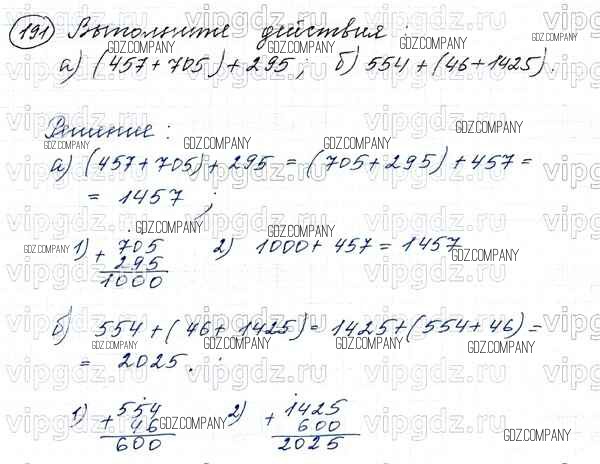 191 Выполните действия:
а) (457+705)+295; б) 554+(46+1425).
Решение:
а) (457+705)+295 = (705+295)+457=
= 1457;
1) 705 2) 1000+457=1457
+ 295
1000
б) 554+(46+1425)=1425+(554+46)=
= 2025.
1) 554 2) 1425
+ 46 + 600
600 2025
GDZ.COMPANY
vipgdz.ru